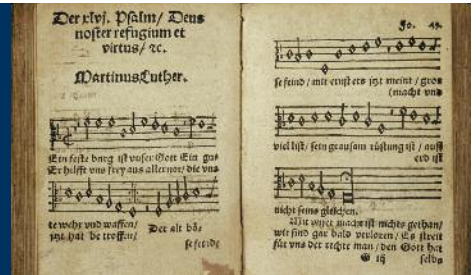 Der xlvj. Psalm/ Deus
noster refugium et
virtus/ ꝛc.
Martinus Luther.
Ein feste burg ist vnser Gott Ein gu⸗
Er hilfft vns frey aus aller not/ die vns
te wehr vnd waffen/ Der alt bö⸗
jtzt hat be troffen/ se feinde
se feind/ mit ernst ers jtzt meint/ gros
(macht vnd
viel list/ sein grausam rüstung ist/ auff
erd ist
nicht seins gleichen.
Mit vnser macht ist nichts gethan/
wir sind gar bald verloren/ Es streit
für vns der rechte man/ den Gott hat
selbs